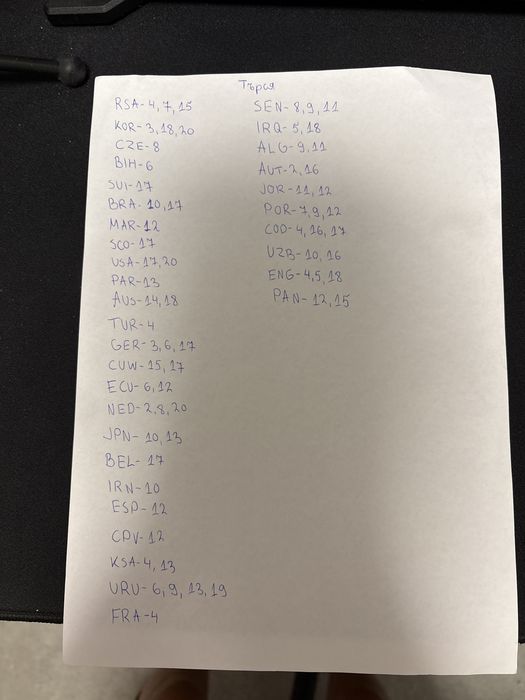 Търся
RSA- 4, 7, 15
KOR- 3, 18, 20
CZE- 8
BIH- 6
SUI- 17
BRA- 10, 17
MAR- 12
SCO- 17
USA- 17, 20
PAR- 13
AUS- 14, 18
TUR- 4
GER- 3, 6, 17
CUW- 15, 17
ECU- 6, 12
NED- 2, 8, 20
JPN- 10, 13
BEL- 17
IRN- 10
ESP- 12
CPV- 12
KSA- 4, 13
URU- 6, 9, 13, 19
FRA- 4
SEN- 8, 9, 11
IRQ- 5, 18
ALG- 9, 11
AUT- 2, 16
JOR- 11, 12
POR- 7, 9, 12
COD- 4, 16, 17
UZB- 10, 16
ENG- 4, 5, 18
PAN- 12, 15